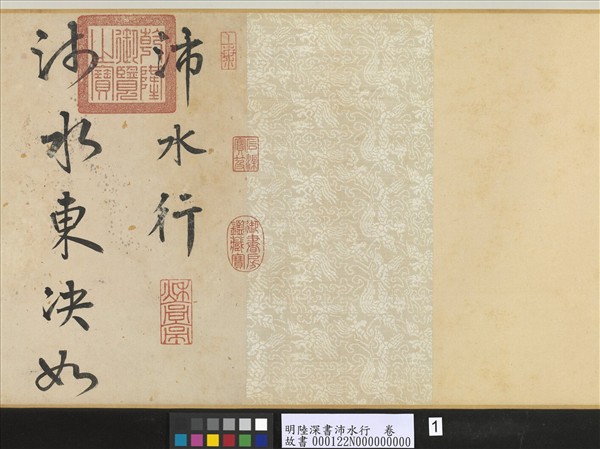 沛水行
沛水東決如
乾隆御覽之寶
石渠寶笈
御書房鑑藏寶
明陸深書沛水行　卷
故書 000122N000000000
1